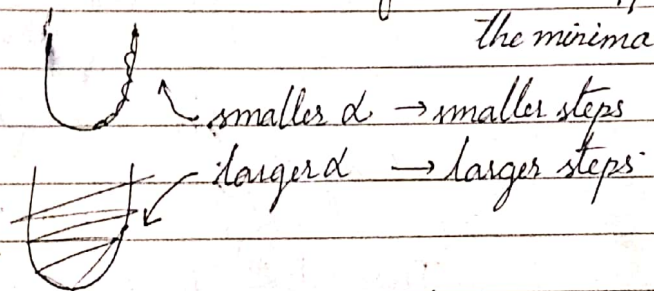 the minima
smaller α → smaller steps
larger α → larger steps